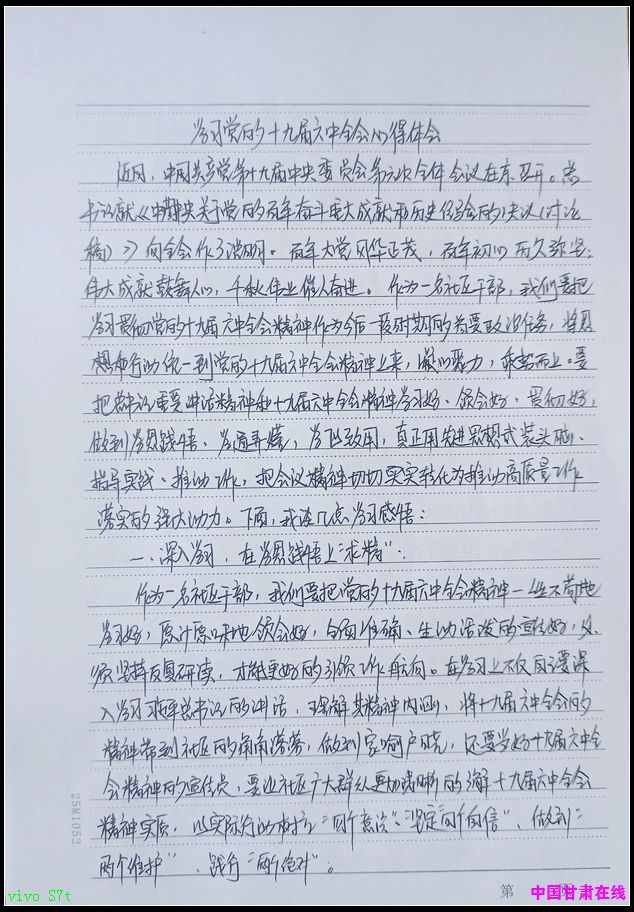 学习党的十九届六中全会心得体会
近日,中国共产党第十九届中央委员会第六次全体会议在京召开。总
书记就《中共中央关于党的百年奋斗重大成就和历史经验的决议(讨论
稿)》向全会作了说明。百年大党风华正茂,百年初心历久弥坚;
伟大成就鼓舞人心,千秋伟业催人奋进。作为一名社区干部,我们要把
学习贯彻党的十九届六中全会精神作为今后一段时期的首要政治任务,将思
想和行动统一到党的十九届六中全会精神上来,凝心聚力,乘势而上。要
把总书记重要讲话精神和十九届六中全会精神学习好、领会好、贯彻好,
做到学思践悟、学通弄懂,学以致用,真正用先进思想武装头脑、
指导实战、推动工作,把会议精神切切实实转化为推动高质量工作
落实的强大动力。下面,我谈几点学习感悟:
一、深入学习,在学思践悟上“求精”。
作为一名社区干部,我们要把党的十九届六中全会精神一丝不苟地
学习好,原汁原味地领会好,全面准确、生动活泼的宣传好,必
须坚持反复研读,才能更好的引领工作航向。在学习上不仅自己要深
入学习习近平总书记的讲话,理解其精神内涵,将十九届六中全会的
精神带到社区的角角落落,做到家喻户晓,还要当好十九届六中全
会精神的宣传员,要让社区广大群众更加清晰的了解十九届六中全会
精神实质,以实际行动树立“四个意识”、坚定“四个自信”、做到“
两个维护”、践行“两个绝对”。
25M1052
第
vivo S7t
中国甘肃在线